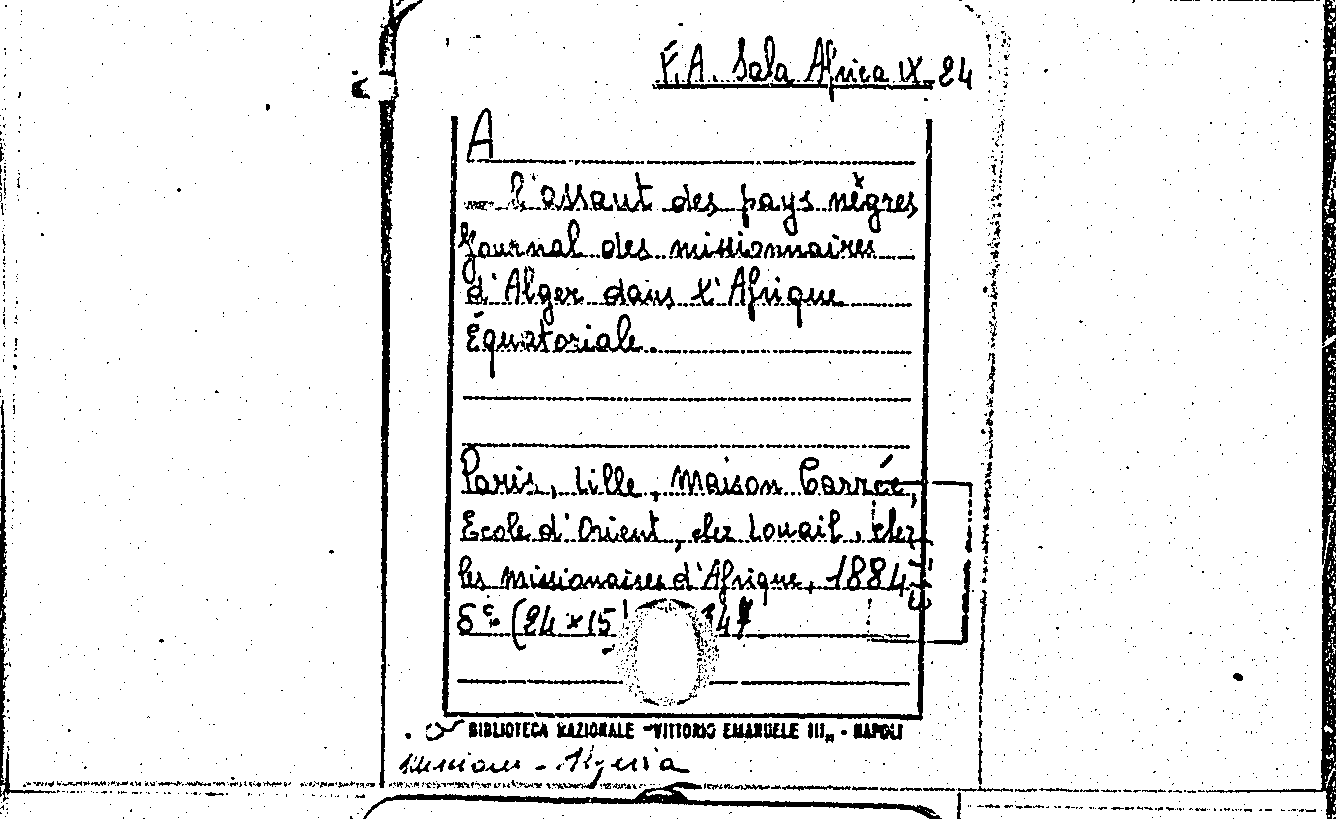 F.A. Sala Africa IX 24
A
l'assaut des pays nègres
Journal des missionnaires
d'Alger dans l'Afrique
Équatoriale.
Paris, Lille, Maison Carrée,
Ecole d'Orient, chez Louail, chez
les missionaires d'Afrique, 1884
8° (24 x 15
BIBLIOTECA NAZIONALE "VITTORIO EMANUELE III„ - NAPOLI